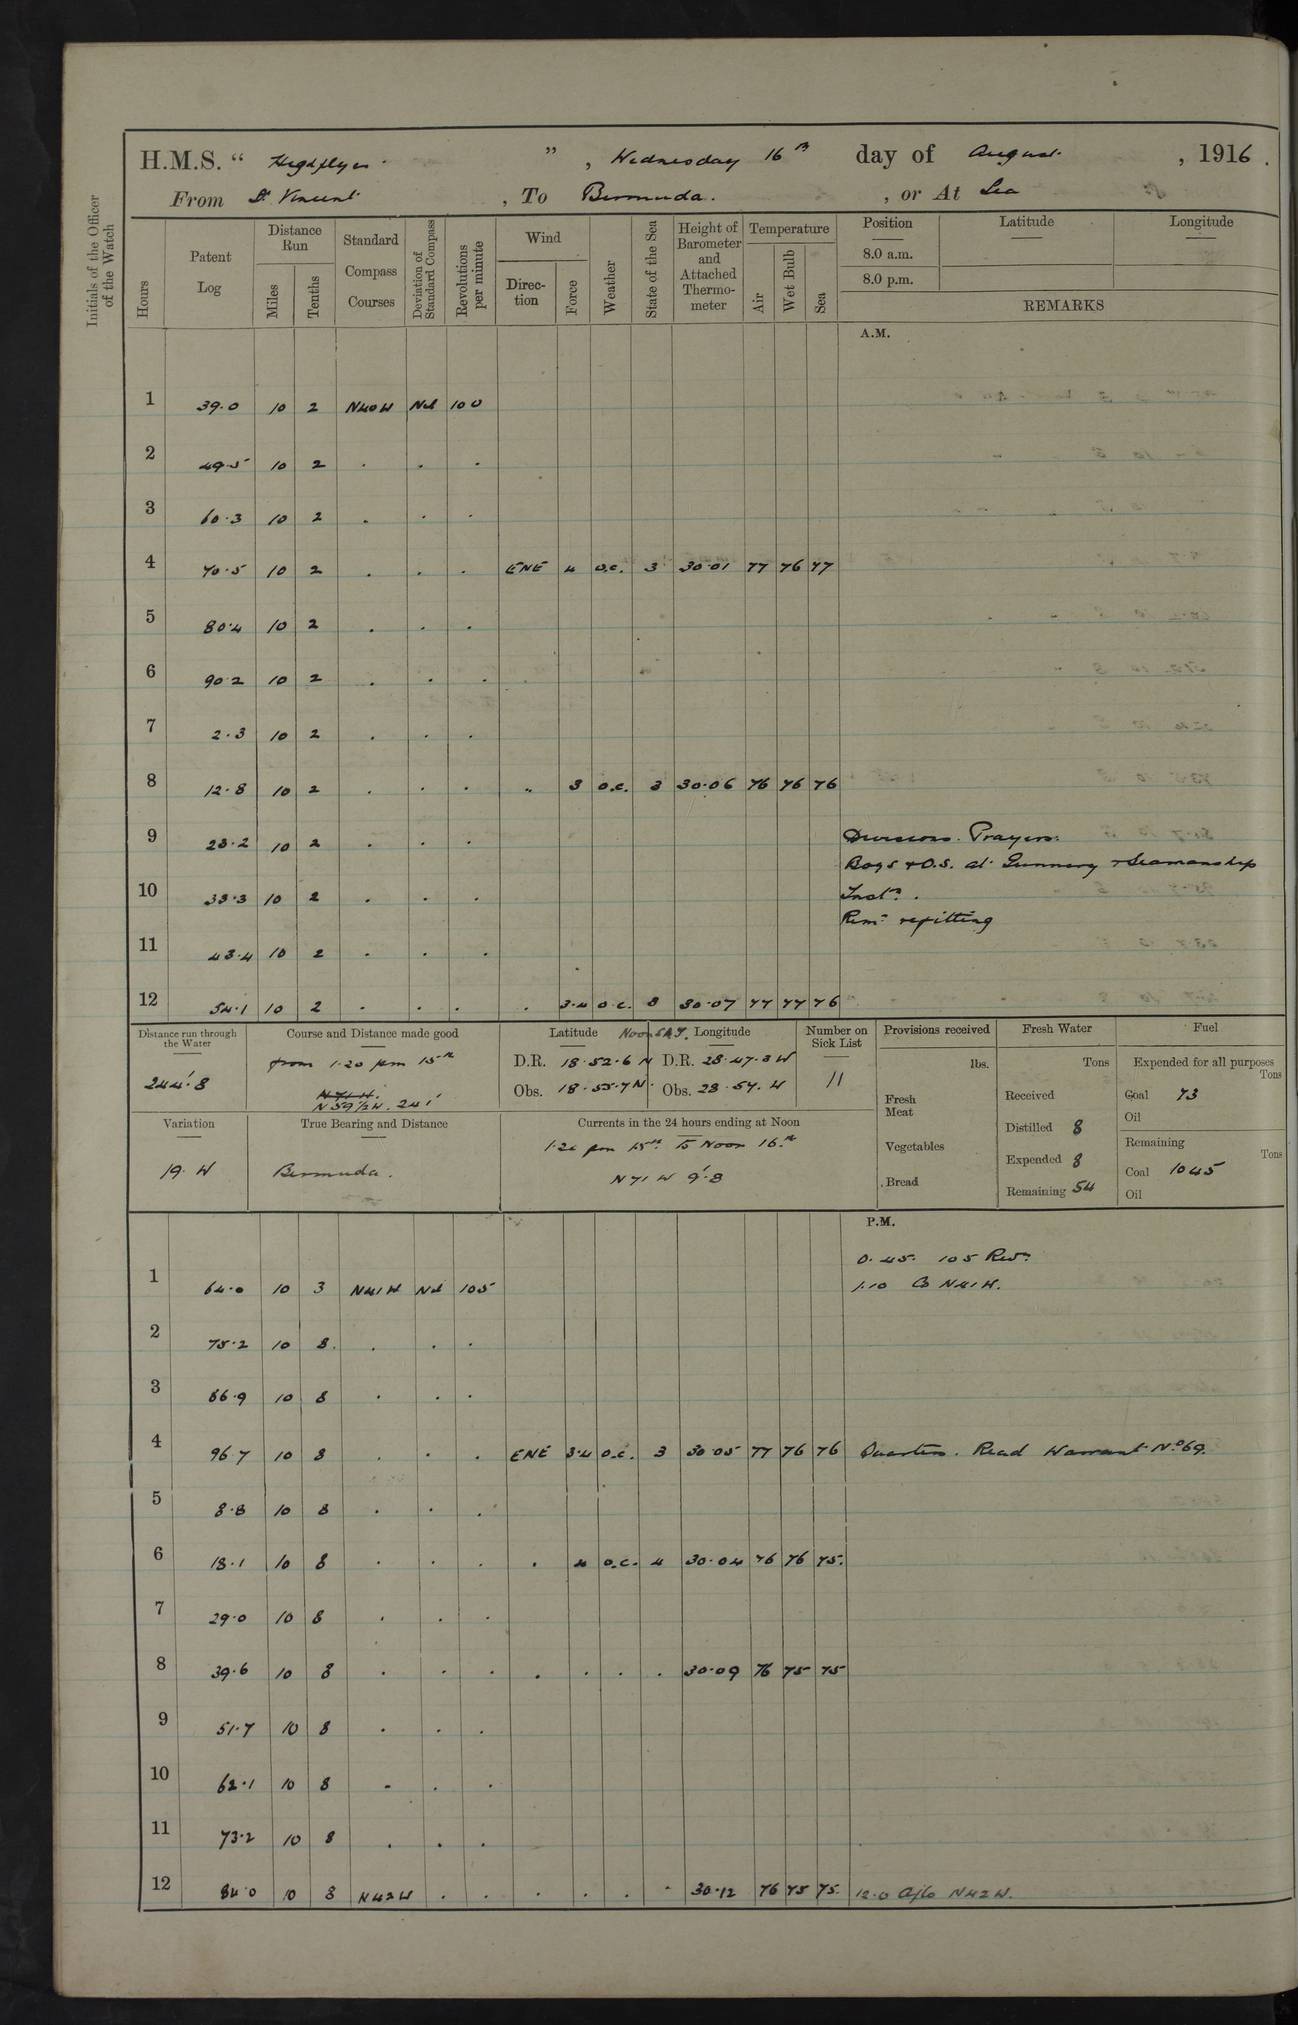 H.M.S. " Highflyer " , Wednesday 16th day of August , 1916.
From St Vincent , To Bermuda. , or At Sea
Initials of the Officer of the Watch
Hours
Patent Log
Distance Run
Miles
Tenths
Standard Compass Courses
Deviation of Standard Compass
Revolutions per minute
Wind
Direction
Force
Weather
State of the Sea
Height of Barometer and Attached Thermometer
Temperature
Air
Wet Bulb
Sea
Position
8.0 a.m.
8.0 p.m.
Latitude
Longitude
REMARKS
A.M.
1 39.0 10 2 N40W Nil 100
2 49.5 10 2 . . .
3 60.3 10 2 . . .
4 70.5 10 2 . . . ENE 4 o.c. 3 30.01 77 76 77
5 80.4 10 2 . . .
6 90.2 10 2 . . .
7 2.3 10 2 . . .
8 12.8 10 2 . . . " 3 o.c. 3 30.06 76 76 76
9 23.2 10 2 . . . Divisions. Prayers.
Boys & O.S. at Gunnery & Seamanship
10 33.3 10 2 . . . Instn.
Remr refitting
11 43.4 10 2 . . .
12 54.1 10 2 . . . . 3.4 o.c. 3 30.07 77 77 76
Distance run through the Water
244'.8
Course and Distance made good
from 1.20 pm 15th
N 71 W.
N 59½ W. 241'
Latitude Noon S.A.T. Longitude
D.R. 18.52.6 N D.R. 28.47.3 W
Obs. 18.55.7 N. Obs. 28.57. W
Number on Sick List
11
Provisions received
lbs.
Fresh Meat
Vegetables
Bread
Fresh Water
Tons
Received
Distilled 8
Expended 8
Remaining 54
Fuel
Expended for all purposes
Tons
Coal 73
Oil
Remaining
Tons
Coal 1045
Oil
Variation
19. W
True Bearing and Distance
Bermuda.
Currents in the 24 hours ending at Noon
1.20 pm 15th To Noon 16th
N 71 W 9'.8
P.M.
0.45. 105 Revs.
1 64.0 10 3 N41W Nil 105 1.10 Co N41W.
2 75.2 10 8 . . .
3 86.9 10 8 . . .
4 96.7 10 8 . . . ENE 3.4 o.c. 3 30.05 77 76 76 Quarters. Read Warrant No 69.
5 8.8 10 8 . . .
6 18.1 10 8 . . . . 4 o.c. 4 30.04 76 76 75.
7 29.0 10 8 . . .
8 39.6 10 8 . . . . . . . 30.09 76 75 75
9 51.7 10 8 . . .
10 62.1 10 8 . . .
11 73.2 10 8 . . .
12 84.0 10 8 N42W . . . . . . 30.12 76 75 75. 12.0 a/co N42W.